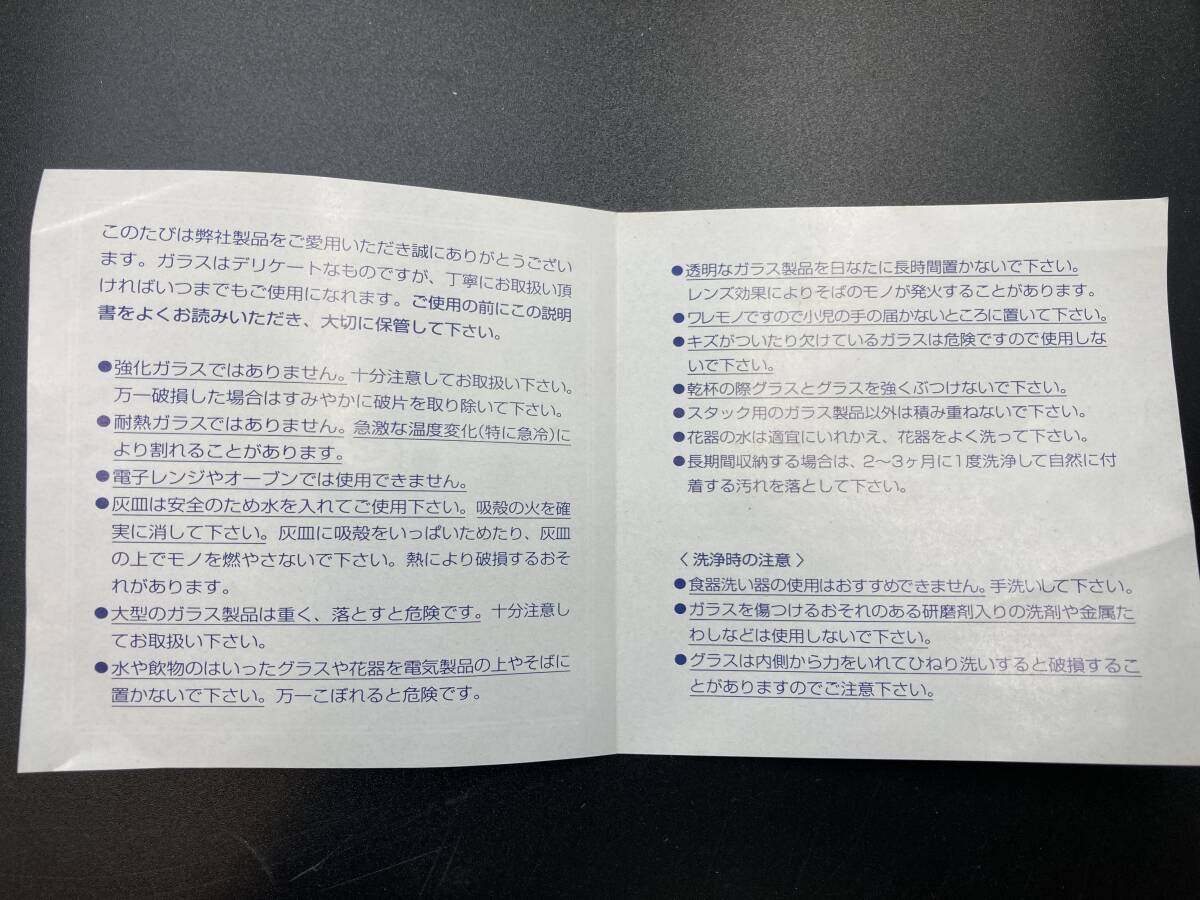 このたびは弊社製品をご愛用いただき誠にありがとうござい
ます。ガラスはデリケートなものですが、丁寧にお取扱い頂
ければいつまでもご使用になれます。ご使用の前にこの説明
書をよくお読みいただき、大切に保管して下さい。
●強化ガラスではありません。十分注意してお取扱い下さい。
万一破損した場合はすみやかに破片を取り除いて下さい。
●耐熱ガラスではありません。急激な温度変化(特に急冷)に
より割れることがあります。
●電子レンジやオーブンでは使用できません。
●灰皿は安全のため水を入れてご使用下さい。吸殻の火を確
実に消して下さい。灰皿に吸殻をいっぱいためたり、灰皿
の上でモノを燃やさないで下さい。熱により破損するおそ
れがあります。
●大型のガラス製品は重く、落とすと危険です。十分注意し
てお取扱い下さい。
●水や飲物のはいったグラスや花器を電気製品の上やそばに
置かないで下さい。万一こぼれると危険です。
●透明なガラス製品を日なたに長時間置かないで下さい。
レンズ効果によりそばのモノが発火することがあります。
●ワレモノですので小児の手の届かないところに置いて下さい。
●キズがついたり欠けているガラスは危険ですので使用しな
いで下さい。
●乾杯の際グラスとグラスを強くぶつけないで下さい。
●スタック用のガラス製品以外は積み重ねないで下さい。
●花器の水は適宜にいれかえ、花器をよく洗って下さい。
●長期間収納する場合は、2〜3ヶ月に1度洗浄して自然に付
着する汚れを落として下さい。
〈洗浄時の注意〉
●食器洗い器の使用はおすすめできません。手洗いして下さい。
●ガラスを傷つけるおそれのある研磨剤入りの洗剤や金属た
わしなどは使用しないで下さい。
●グラスは内側から力をいれてひねり洗いすると破損するこ
とがありますのでご注意下さい。